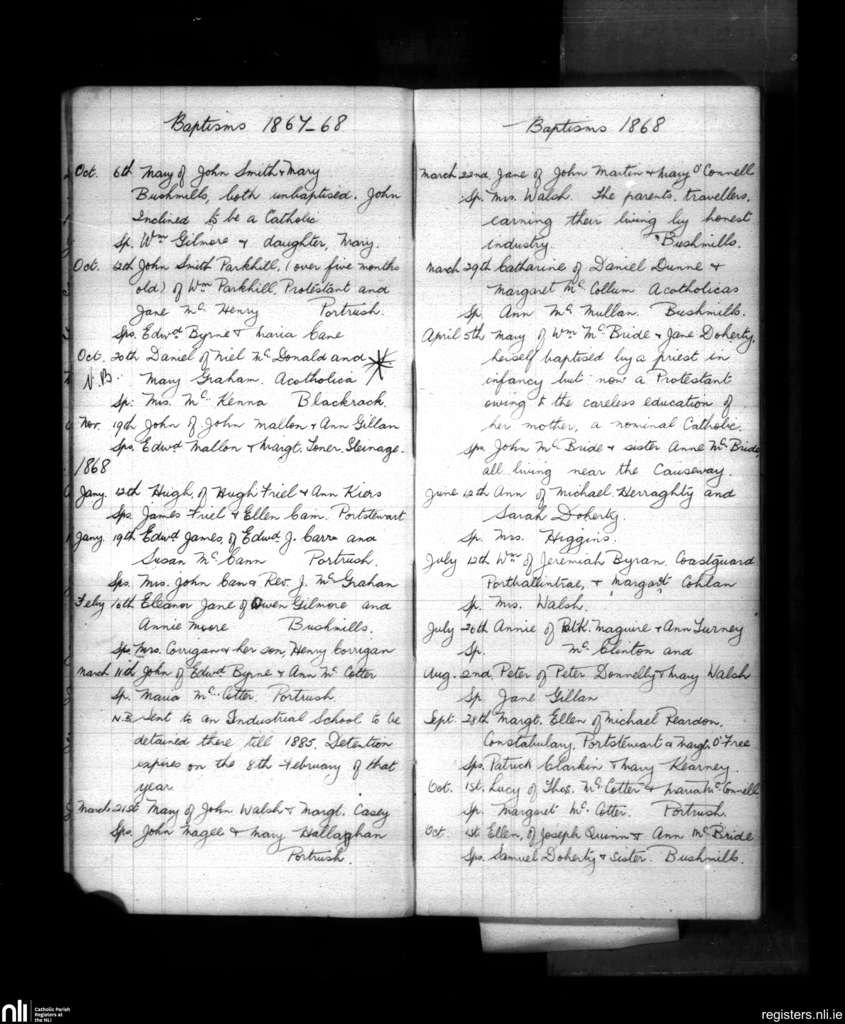 Baptisms 1867-68
Oct. 6th Mary of John Smith & Mary
Bushmills, both unbaptised. John
Inclined to be a Catholic
Sp. Wm Gilmore & daughter, Mary.
Oct. 12th John Smith Parkhill, (over five months
old) of Wm Parkhill, Protestant and
Jane Mc Henry Portrush.
Sps. Edwd Byrne & Maria Cane
Oct. 20th Daniel of Niel Mc Donald and
N.B. Mary Graham. Acatholica
Sp: Mrs. Mc Kenna Blackrock.
Nov. 19th John of John Mallon & Ann Gillan
Sps. Edwd Mallon & Margt. Toner.
1868
Jany. 12th Hugh, of Hugh Friel & Ann Kiers
Sps. James Friel & Ellen Cam. Portstewart
Jany. 19th Edwd James, of Edwd J. Carr and
Susan Mc Cann Portrush.
Sps. Mrs. John Can & Rev. J. Mc Grahan
Feby 16th Eleanor Jane of Owen Gilmore and
Annie Moore Bushmills.
Sps. Mrs. Corrigan & her son, Henry Corrigan
March 11th John of Edwd Byrne & Ann Mc Cotter
Sp. Maria Mc Cotter. Portrush
N.B. Sent to an Industrial School to be
detained there till 1885. Detention
expires on the 8th February of that
year
March 21st Mary of John Walsh & Margt. Casey
Sps. John Magee & Mary Hallaghan
Portrush.
Baptisms 1868
March 22nd Jane of John Martin & Mary O'Connell
Sp. Mrs. Walsh. The parents, travellers,
earning their living by honest
industry. Bushmills.
March 29th Catharine of Daniel Dunne &
Margaret Mc Collum Acatholicas
Sp. Ann Mc Mullan. Bushmills.
April 5th Mary of Wm Mc Bride & Jane Doherty,
herself baptised by a priest in
infancy but now a Protestant
owing to the careless education of
her mother, a nominal Catholic.
Sps. John Mc Bride & sister Anne Mc Bride,
all living near the Causeway.
June 12th Ann of Michael Herraghty and
Sarah Doherty.
Sp. Mrs. Higgins.
July 12th Wm of Jeremiah Byran. Coastguard
Portballintrae, & Margaret Cohlan
Sp. Mrs. Walsh.
July 26th Annie of Patk. Maguire & Ann Turney
Sp. Mc Clinton and
Aug. 2nd, Peter of Peter Donnelly & Mary Walsh
Sp. Jane Gillan
Sept. 28th Margt. Ellen of Michael Reardon.
Constabulary, Portstewart & Margt. O'Free
Sps. Patrick Clarkin & Mary Kearney.
Oct. 1st, Lucy of Thos. Mc Cotter & Maria Mc Connell
Sp. Margaret Mc Cotter. Portrush.
Oct. 1st Ellen, of Joseph Quinn & Ann Mc Bride
Sps. Samuel Doherty & sister. Bushmills.
nli
Catholic Parish
Registers at
the NLI
registers.nli.ie